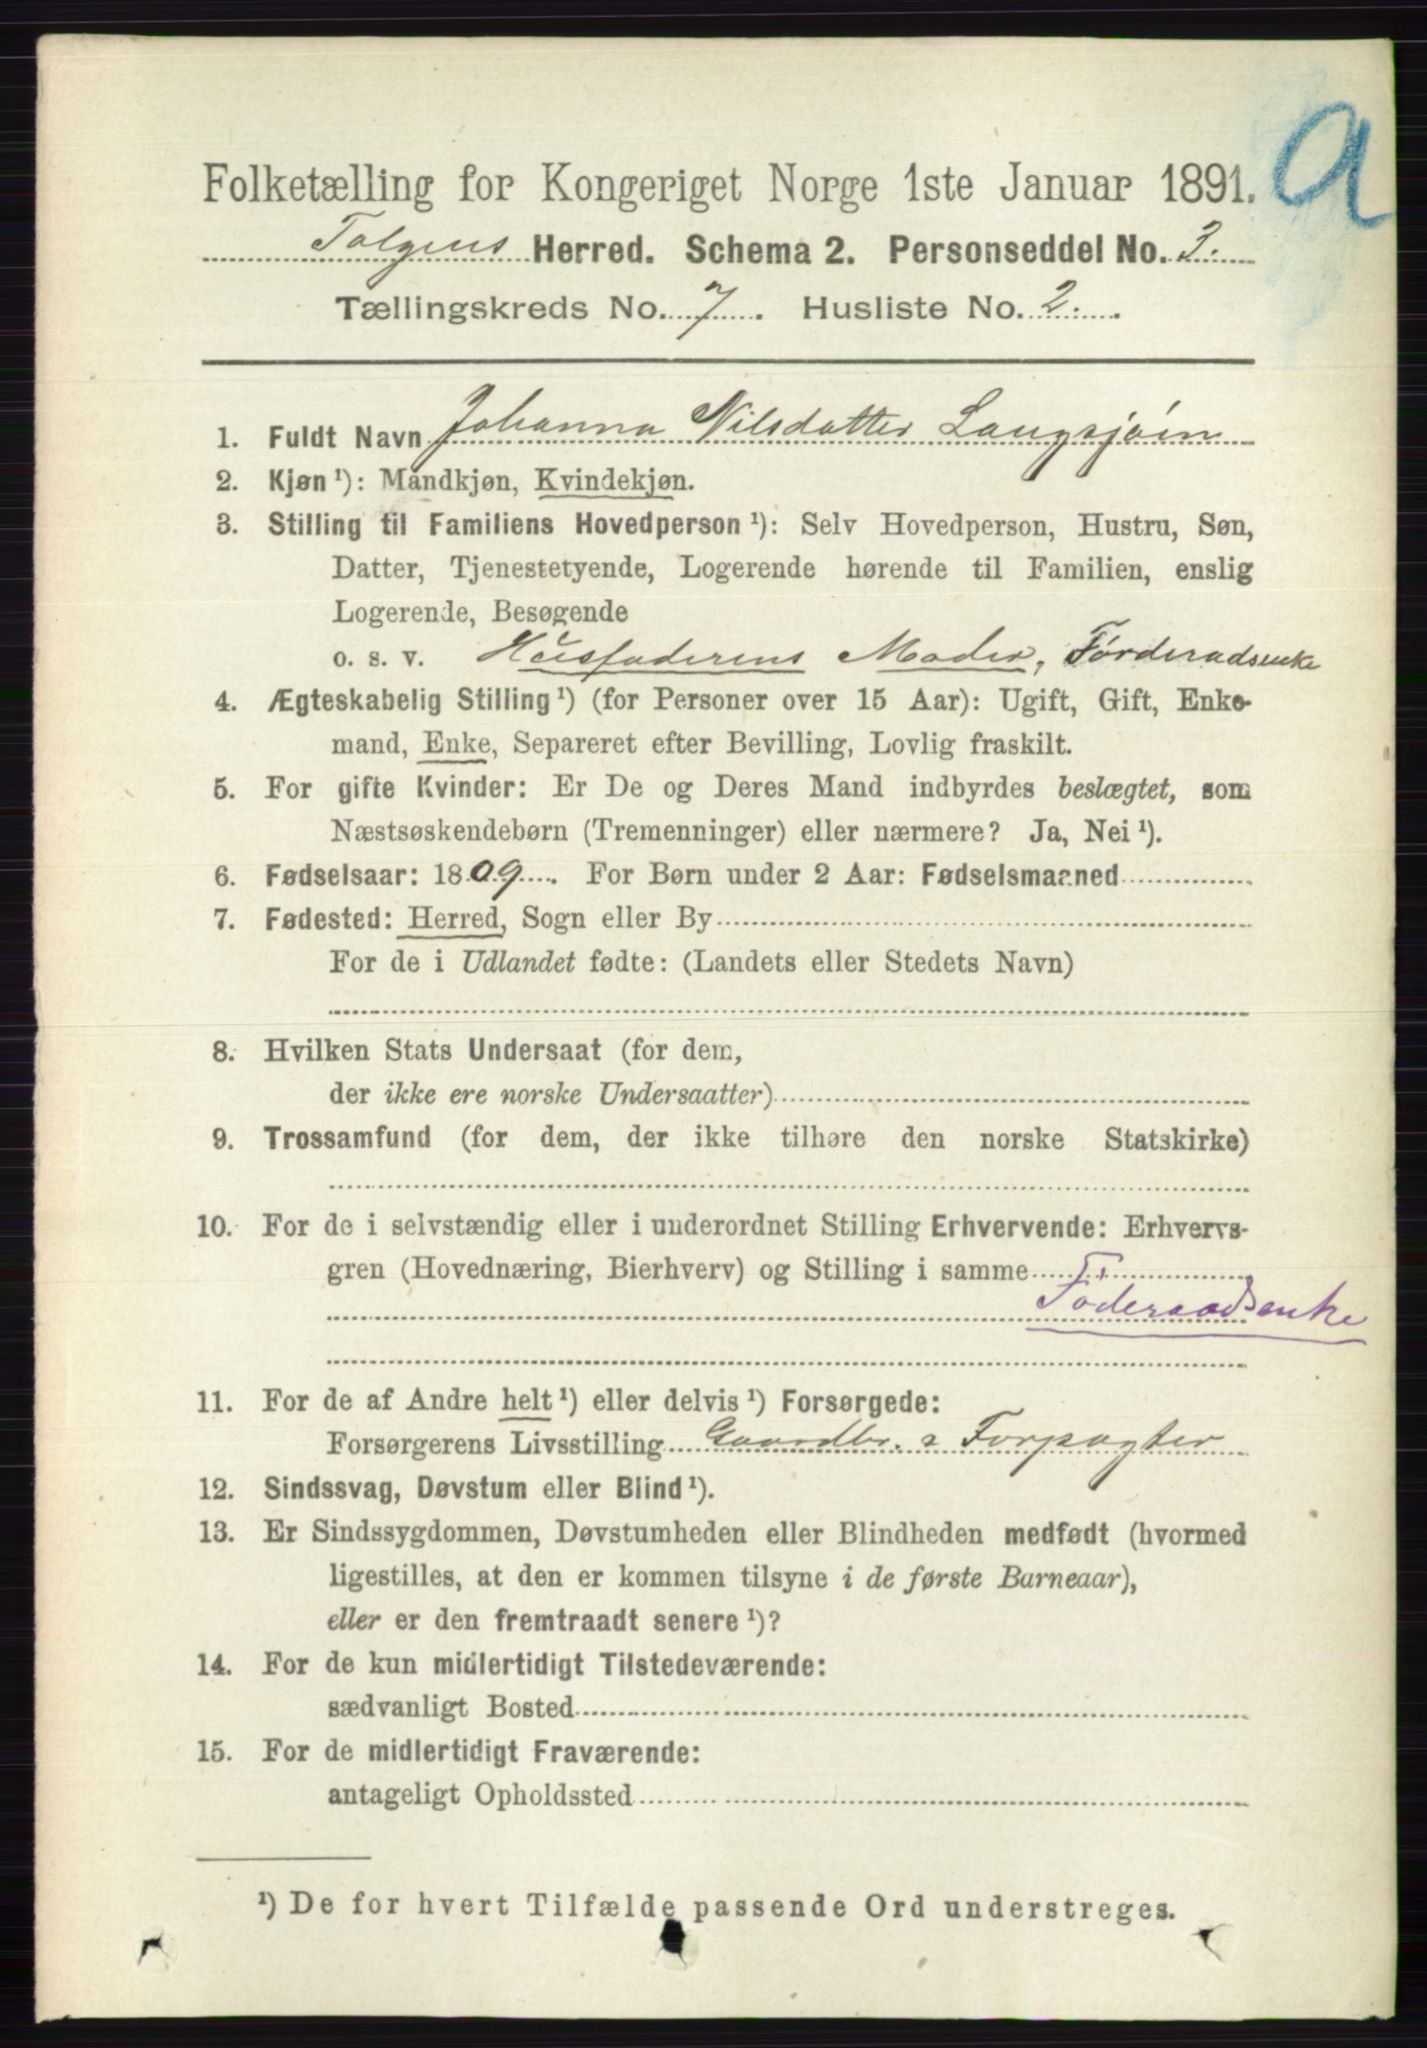 a
Folketælling for Kongeriget Norge 1ste Januar 1891.
Tolgens Herred. Schema 2. Personseddel No. 3.
Tællingskreds No. 7. Husliste No. 2.
1. Fuldt Navn Johanna Nilsdatter Langsjøin
2. Kjøn ¹): Mandkjøn, Kvindekjøn.
3. Stilling til Familiens Hovedperson ¹): Selv Hovedperson, Hustru, Søn,
Datter, Tjenestetyende, Logerende hørende til Familien, enslig
Logerende, Besøgende
o. s. v. Husfaderens Moder, Førderadsenke
4. Ægteskabelig Stilling ¹) (for Personer over 15 Aar): Ugift, Gift, Enke-
mand, Enke, Separeret efter Bevilling, Lovlig fraskilt.
5. For gifte Kvinder: Er De og Deres Mand indbyrdes beslægtet, som
Næstsøskendebørn (Tremenninger) eller nærmere? Ja, Nei ¹).
6. Fødselsaar: 1809. For Børn under 2 Aar: Fødselsmaaned
7. Fødested: Herred, Sogn eller By
For de i Udlandet fødte: (Landets eller Stedets Navn)
8. Hvilken Stats Undersaat (for dem,
der ikke ere norske Undersaatter)
9. Trossamfund (for dem, der ikke tilhøre den norske Statskirke)
10. For de i selvstændig eller i underordnet Stilling Erhvervende: Erhvervs-
gren (Hovednæring, Bierhverv) og Stilling i samme
Føderaadsenke
11. For de af Andre helt ¹) eller delvis ¹) Forsørgede:
Forsørgerens Livsstilling Gaardbr. & Forpagter
12. Sindssvag, Døvstum eller Blind ¹).
13. Er Sindssygdommen, Døvstumheden eller Blindheden medfødt (hvormed
ligestilles, at den er kommen tilsyne i de første Barneaar),
eller er den fremtraadt senere ¹)?
14. For de kun midlertidigt Tilstedeværende:
sædvanligt Bosted
15. For de midlertidigt Fraværende:
antageligt Opholdssted
¹) De for hvert Tilfælde passende Ord understreges.